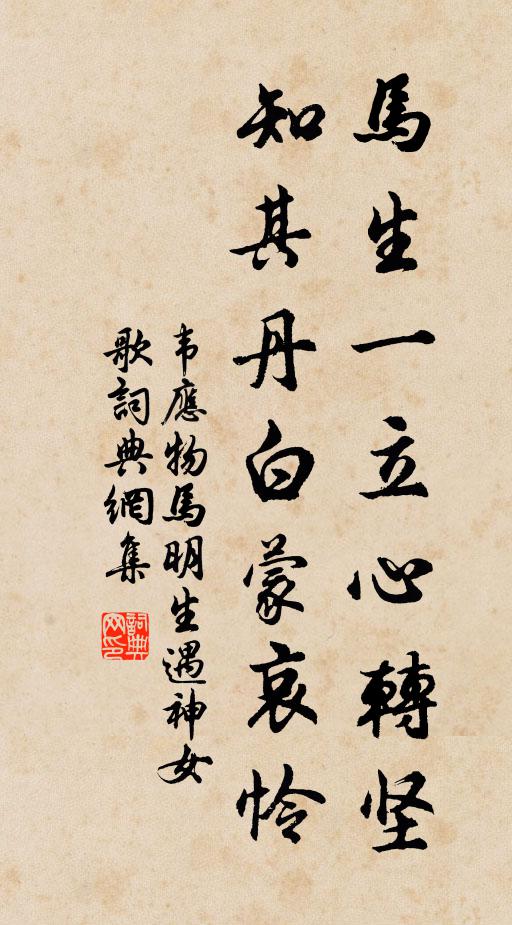 馬生一立心轉坚
知其丹白蒙哀怜
韦應物馬明生遇神女
歌詞典網集
詞典网印